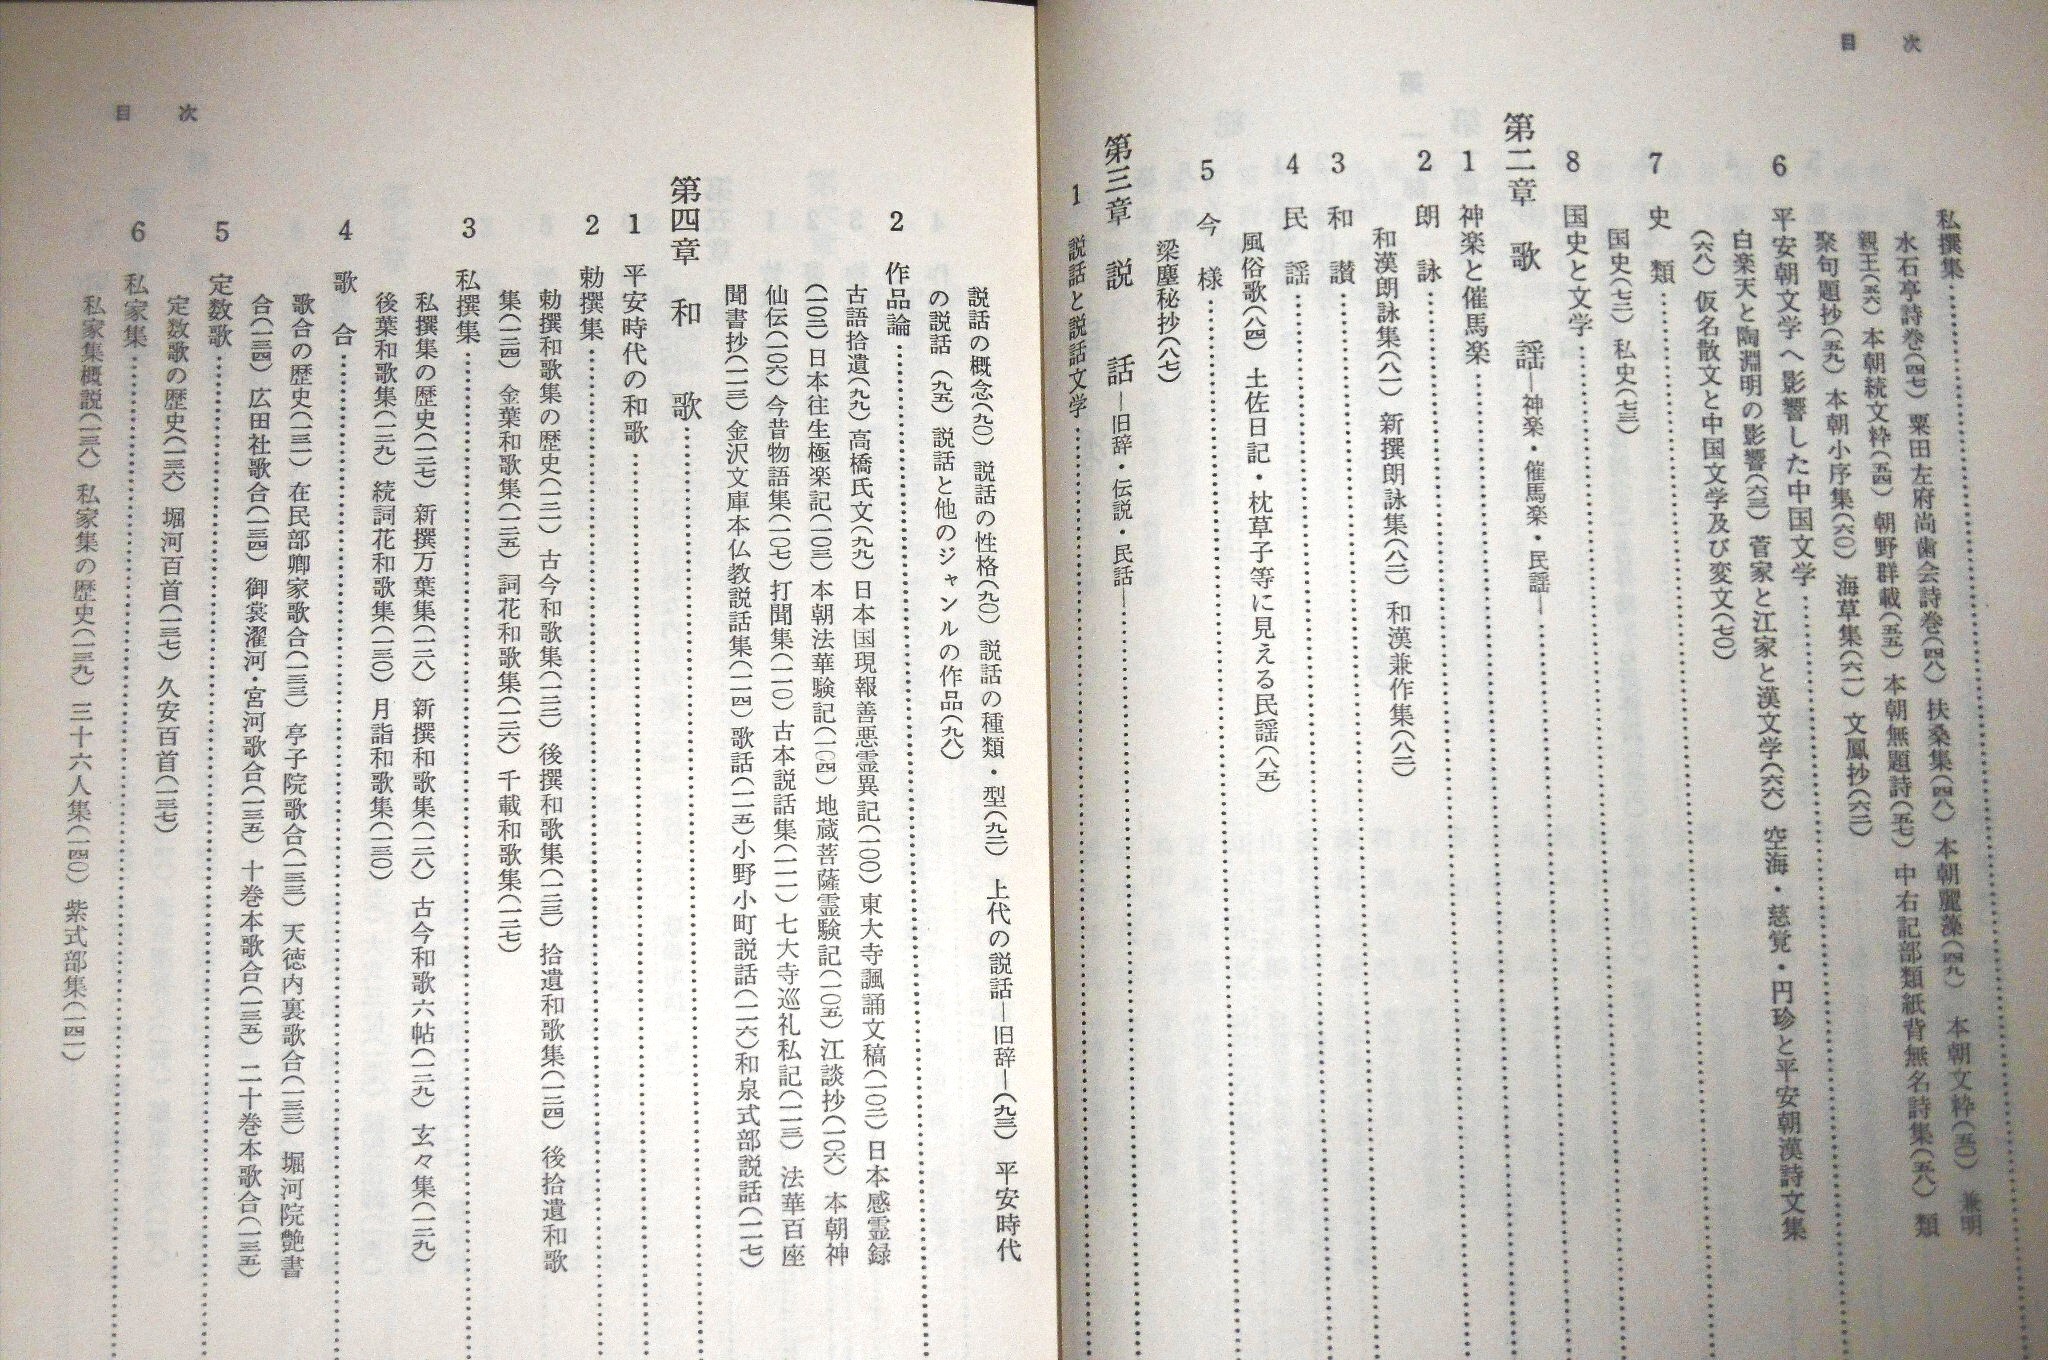 目次
私撰集
水石亭詩巻(四七) 粟田左府尚歯会詩巻(四八) 扶桑集(四八) 本朝麗藻(四九) 本朝文粋(五〇) 兼明
親王(五六) 本朝続文粋(五四) 朝野群載(五五) 本朝無題詩(五七) 中右記部類紙背無名詩集(五八) 類
聚句題抄(五九) 本朝小序集(六〇) 海草集(六一) 文鳳抄(六二)
6 平安朝文学へ影響した中国文学
白楽天と陶淵明の影響(六三) 菅家と江家と漢文学(六六) 空海・慈覚・円珍と平安朝漢詩文集
(六八) 仮名散文と中国文学及び変文(七〇)
7 史類
国史(七二) 私史(七三)
8 国史と文学
第二章 歌謡―神楽・催馬楽・民謡―
1 神楽と催馬楽
2 朗詠
和漢朗詠集(八一) 新撰朗詠集(八二) 和漢兼作集(八二)
3 和讃
4 民謡
風俗歌(八四) 土佐日記・枕草子等に見える民謡(八五)
5 今様
梁塵秘抄(八七)
第三章 説話―旧辞・伝説・民話―
1 説話と説話文学
説話の概念(九〇) 説話の性格(九〇) 説話の種類・型(九二) 上代の説話―旧辞―(九三) 平安時代
の説話(九五) 説話と他のジャンルの作品(九八)
2 作品論
古語拾遺(九九) 高橋氏文(九九) 日本国現報善悪霊異記(一〇〇) 東大寺諷誦文稿(一〇二) 日本感霊録
(一〇三) 日本往生極楽記(一〇三) 本朝法華験記(一〇四) 地蔵菩薩霊験記(一〇五) 江談抄(一〇六) 本朝神
仙伝(一〇六) 今昔物語集(一〇七) 打聞集(一一〇) 古本説話集(一一一) 七大寺巡礼私記(一一三) 法華百座
聞書抄(一一三) 金沢文庫本仏教説話集(一一四) 歌話(一一五) 小野小町説話(一一六) 和泉式部説話(一一七)
第四章 和歌
1 平安時代の和歌
2 勅撰集
勅撰和歌集の歴史(一二一) 古今和歌集(一二二) 後撰和歌集(一二三) 拾遺和歌集(一二四) 後拾遺和歌
集(一二四) 金葉和歌集(一二五) 詞花和歌集(一二六) 千載和歌集(一二七)
3 私撰集
私撰集の歴史(一二七) 新撰万葉集(一二八) 新撰和歌集(一二八) 古今和歌六帖(一二九) 玄々集(一二九)
後葉和歌集(一二九) 続詞花和歌集(一三〇) 月詣和歌集(一三〇)
4 歌合
歌合の歴史(一三一) 在民部卿家歌合(一三三) 亭子院歌合(一三三) 天徳内裏歌合(一三三) 堀河院艶書
合(一三四) 広田社歌合(一三四) 御裳濯河・宮河歌合(一三五) 十巻本歌合(一三五) 二十巻本歌合(一三五)
5 定数歌
定数歌の歴史(一三六) 堀河百首(一三七) 久安百首(一三七)
6 私家集
私家集概説(一三八) 私家集の歴史(一三九) 三十六人集(一四〇) 紫式部集(一四一)
目次